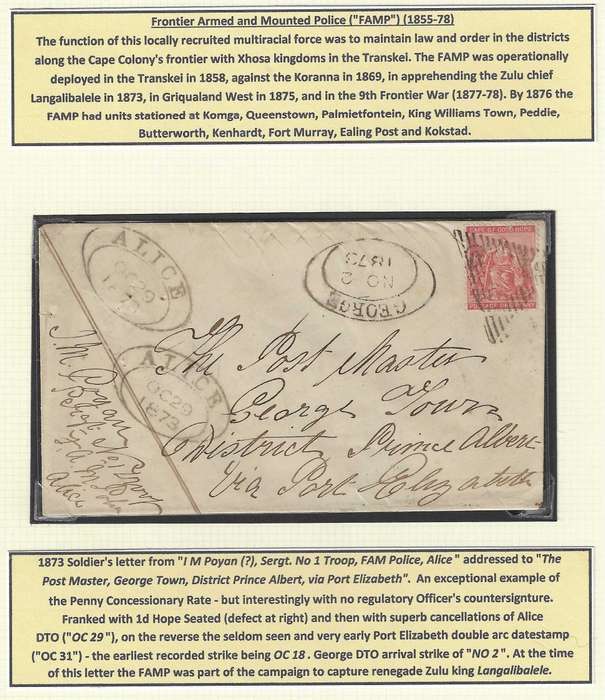 Frontier Armed and Mounted Police ("FAMP") (1855-78)
The function of this locally recruited multiracial force was to maintain law and order in the districts
along the Cape Colony's frontier with Xhosa kingdoms in the Transkei. The FAMP was operationally
deployed in the Transkei in 1858, against the Koranna in 1869, in apprehending the Zulu chief
Langalibalele in 1873, in Griqualand West in 1875, and in the 9th Frontier War (1877-78). By 1876 the
FAMP had units stationed at Komga, Queenstown, Palmietfontein, King Williams Town, Peddie,
Butterworth, Kenhardt, Fort Murray, Ealing Post and Kokstad.
ALICE
OC29
1873
GEORGE
NO 2
1873
CAPE OF GOOD HOPE
ALICE
OC29
1873
The Post Master
George Town
District Prince Albert
Via Port Elizabeth
Alice
1873 Soldier's letter from "I M Poyan (?), Sergt. No 1 Troop, FAM Police, Alice" addressed to "The
Post Master, George Town, District Prince Albert, via Port Elizabeth". An exceptional example of
the Penny Concessionary Rate - but interestingly with no regulatory Officer's countersignture.
Franked with 1d Hope Seated (defect at right) and then with superb cancellations of Alice
DTO ("OC 29"), on the reverse the seldom seen and very early Port Elizabeth double arc datestamp
("OC 31") - the earliest recorded strike being OC 18. George DTO arrival strike of "NO 2". At the time
of this letter the FAMP was part of the campaign to capture renegade Zulu king Langalibalele.